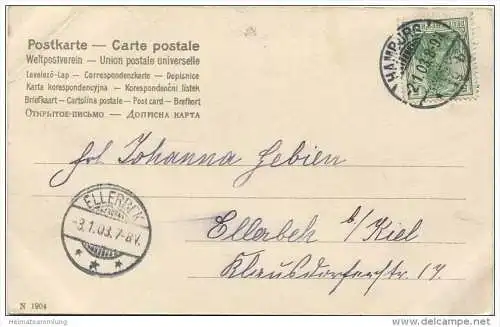 Postkarte — Carte postale
Weltpostverein — Union postale universelle
Levelező-Lap — Correspondenzkarte — Dopisnice
Karta korespondencyjna — Korespondenční lístek
Briefkaart — Cartolina postale — Post card — Brefkort
Открытое письмо — Дописна карта
HAMBURG
2.1.03.
Frl. Johanna Gebien
ELLERBEK
-3.1.03.7-8V.
Ellerbek b/Kiel
Klausdorferstr. 14
N 1904
Heimatsammlung